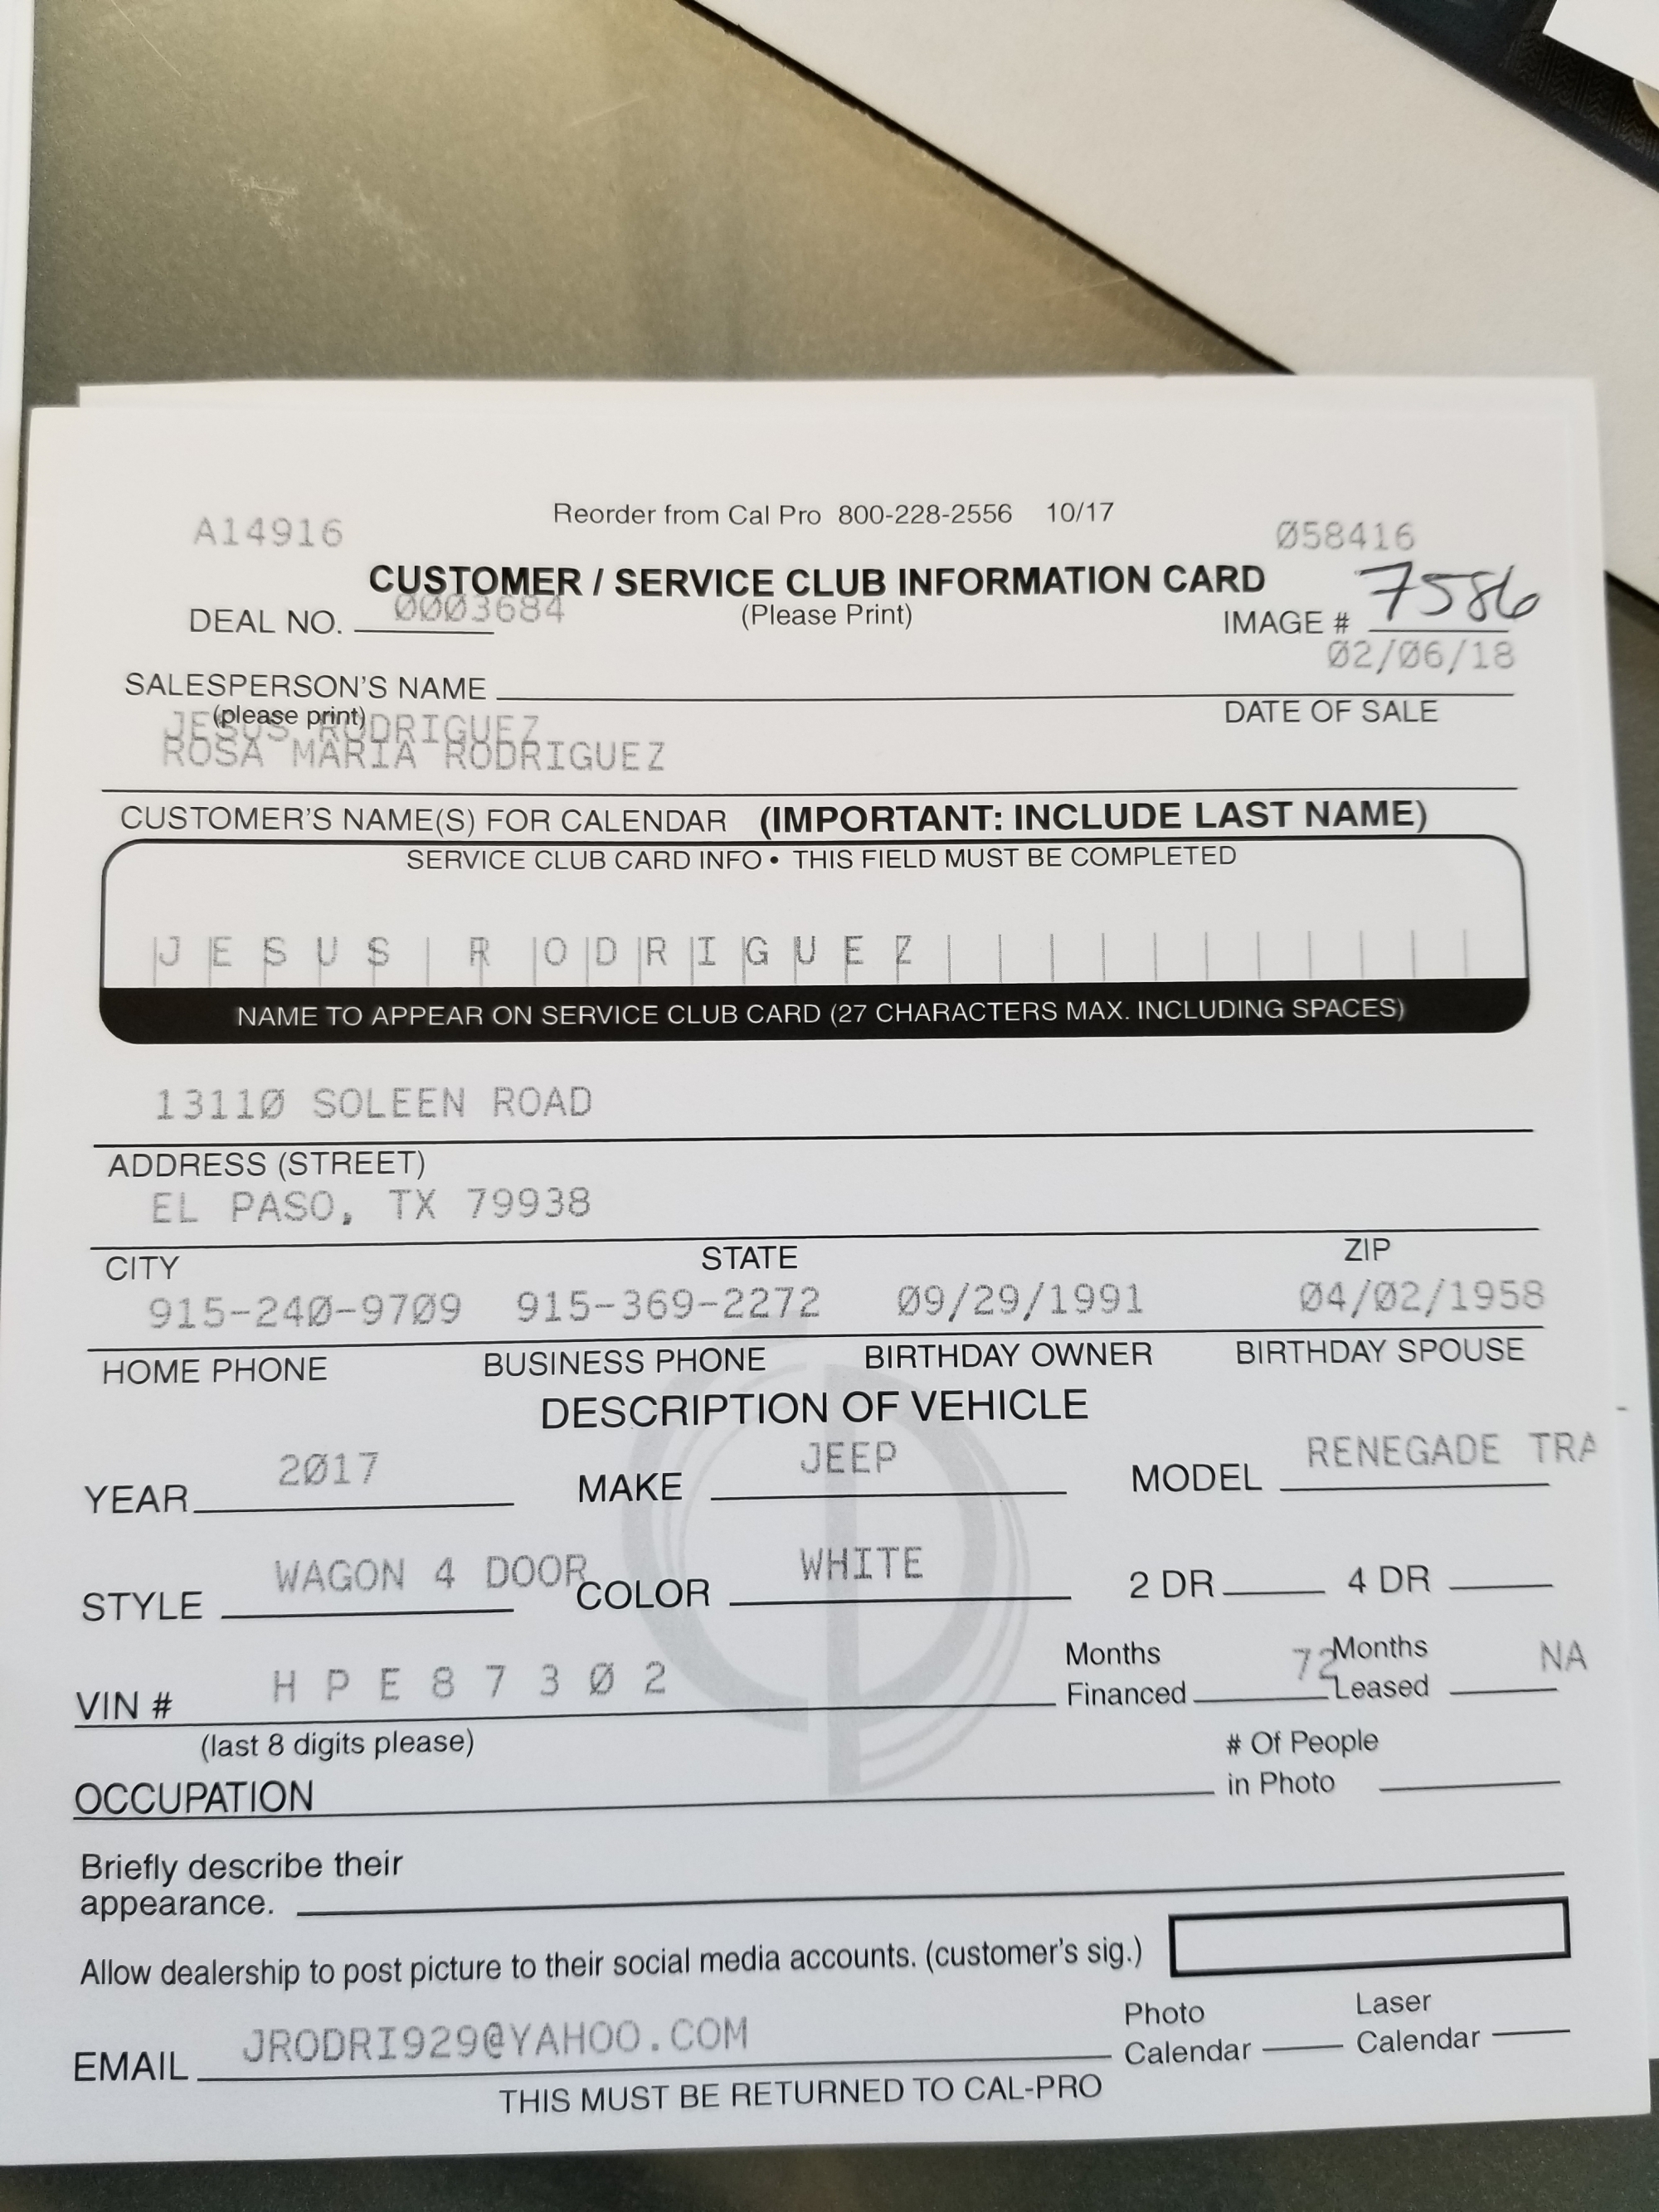 Reorder from Cal Pro 800-228-2556 10/17
A14916 Ø58416
CUSTOMER / SERVICE CLUB INFORMATION CARD
DEAL NO. ØØØ3684 (Please Print) IMAGE # 7586
Ø2/Ø6/18
SALESPERSON'S NAME
(please print) DATE OF SALE
JESUS RODRIGUEZ
ROSA MARIA RODRIGUEZ
CUSTOMER'S NAME(S) FOR CALENDAR (IMPORTANT: INCLUDE LAST NAME)
SERVICE CLUB CARD INFO • THIS FIELD MUST BE COMPLETED
JESUS RODRIGUEZ
NAME TO APPEAR ON SERVICE CLUB CARD (27 CHARACTERS MAX. INCLUDING SPACES)
1311Ø SOLEEN ROAD
ADDRESS (STREET)
EL PASO, TX 79938
CITY STATE ZIP
915-24Ø-97Ø9 915-369-2272 Ø9/29/1991 Ø4/Ø2/1958
HOME PHONE BUSINESS PHONE BIRTHDAY OWNER BIRTHDAY SPOUSE
DESCRIPTION OF VEHICLE
YEAR 2Ø17 MAKE JEEP MODEL RENEGADE TRA
STYLE WAGON 4 DOOR COLOR WHITE 2 DR 4 DR
VIN # H P E 8 7 3 Ø 2 Months Financed 72 Months Leased NA
(last 8 digits please)
OCCUPATION # Of People in Photo
Briefly describe their
appearance.
Allow dealership to post picture to their social media accounts. (customer's sig.)
EMAIL JRODRI929@YAHOO.COM Photo Calendar Laser Calendar
THIS MUST BE RETURNED TO CAL-PRO